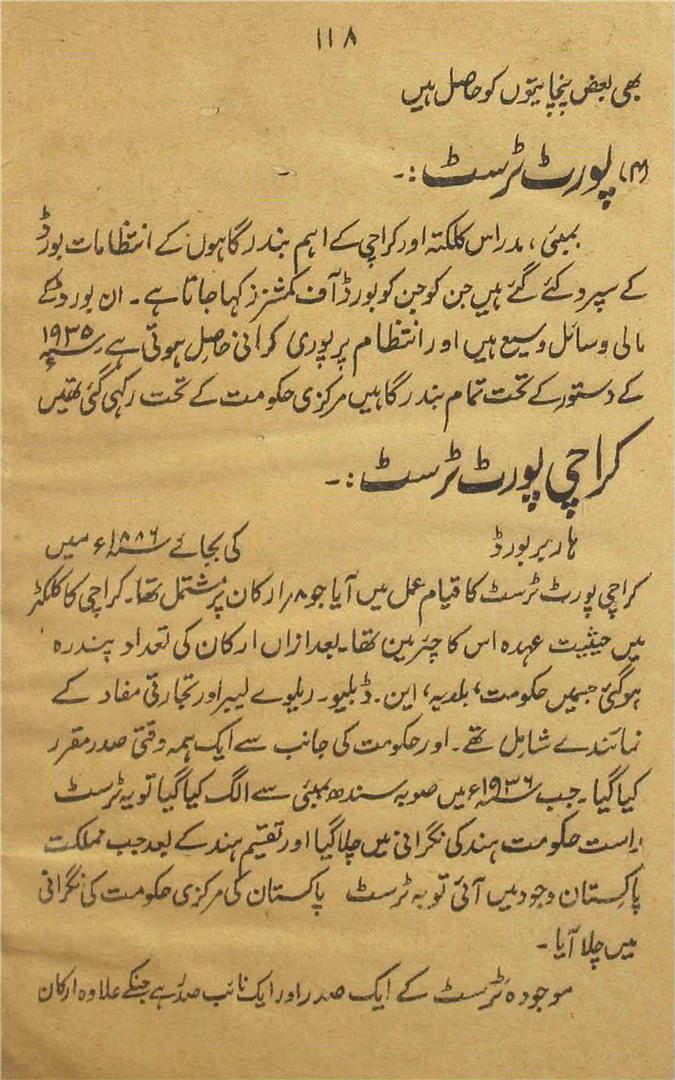 ۱۱۸
بھی بعض پنچایتوں کو حاصل ہیں
(۴) پورٹ ٹرسٹ :۔
بمبئی، مدراس کلکتہ اور کراچی کے اہم بندرگاہوں کے انتظامات بورڈ
کے سپرد کئے گئے ہیں جن کو جن کو بورڈ آف کمشنرز کہا جاتا ہے۔ ان بورڈ کے
مالی وسائل وسیع ہیں اور انتظام پر پوری نگرانی حاصل ہوتی ہے۔ ۱۹۳۵ء
کے دستور کے تحت تمام بندرگاہیں مرکزی حکومت کے تحت رکھی گئی تھیں
کراچی پورٹ ٹرسٹ :۔
ہاربر بورڈ کی بجائے ۱۸۸۶ء میں
کراچی پورٹ ٹرسٹ کا قیام عمل میں آیا جو ۸ ارکان پر مشتمل تھا۔ کراچی کا کلکٹر
میں حیثیت عہدہ اس کا چئرمین تھا۔ بعد ازاں ارکان کی تعداد پندرہ
ہوگئی جسمیں حکومت، بلدیہ، این۔ ڈبلیو۔ ریلوے لیبر اور تجارتی مفاد کے
نمائندے شامل تھے۔ اور حکومت کی جانب سے ایک ہمہ وقتی صدر مقرر
کیا گیا۔ جب ۱۹۳۶ء میں صوبہ سندھ بمبئی سے الگ کیا گیا تو یہ ٹرسٹ
راست حکومت ہند کی نگرانی میں چلا گیا اور تقسیم ہند کے بعد جب مملکت
پاکستان وجود میں آئی تو یہ ٹرسٹ پاکستان کی مرکزی حکومت کی نگرانی
میں چلا آیا۔
موجودہ ٹرسٹ کے ایک صدر اور ایک نائب صدر ہے جنکے علاوہ ارکان